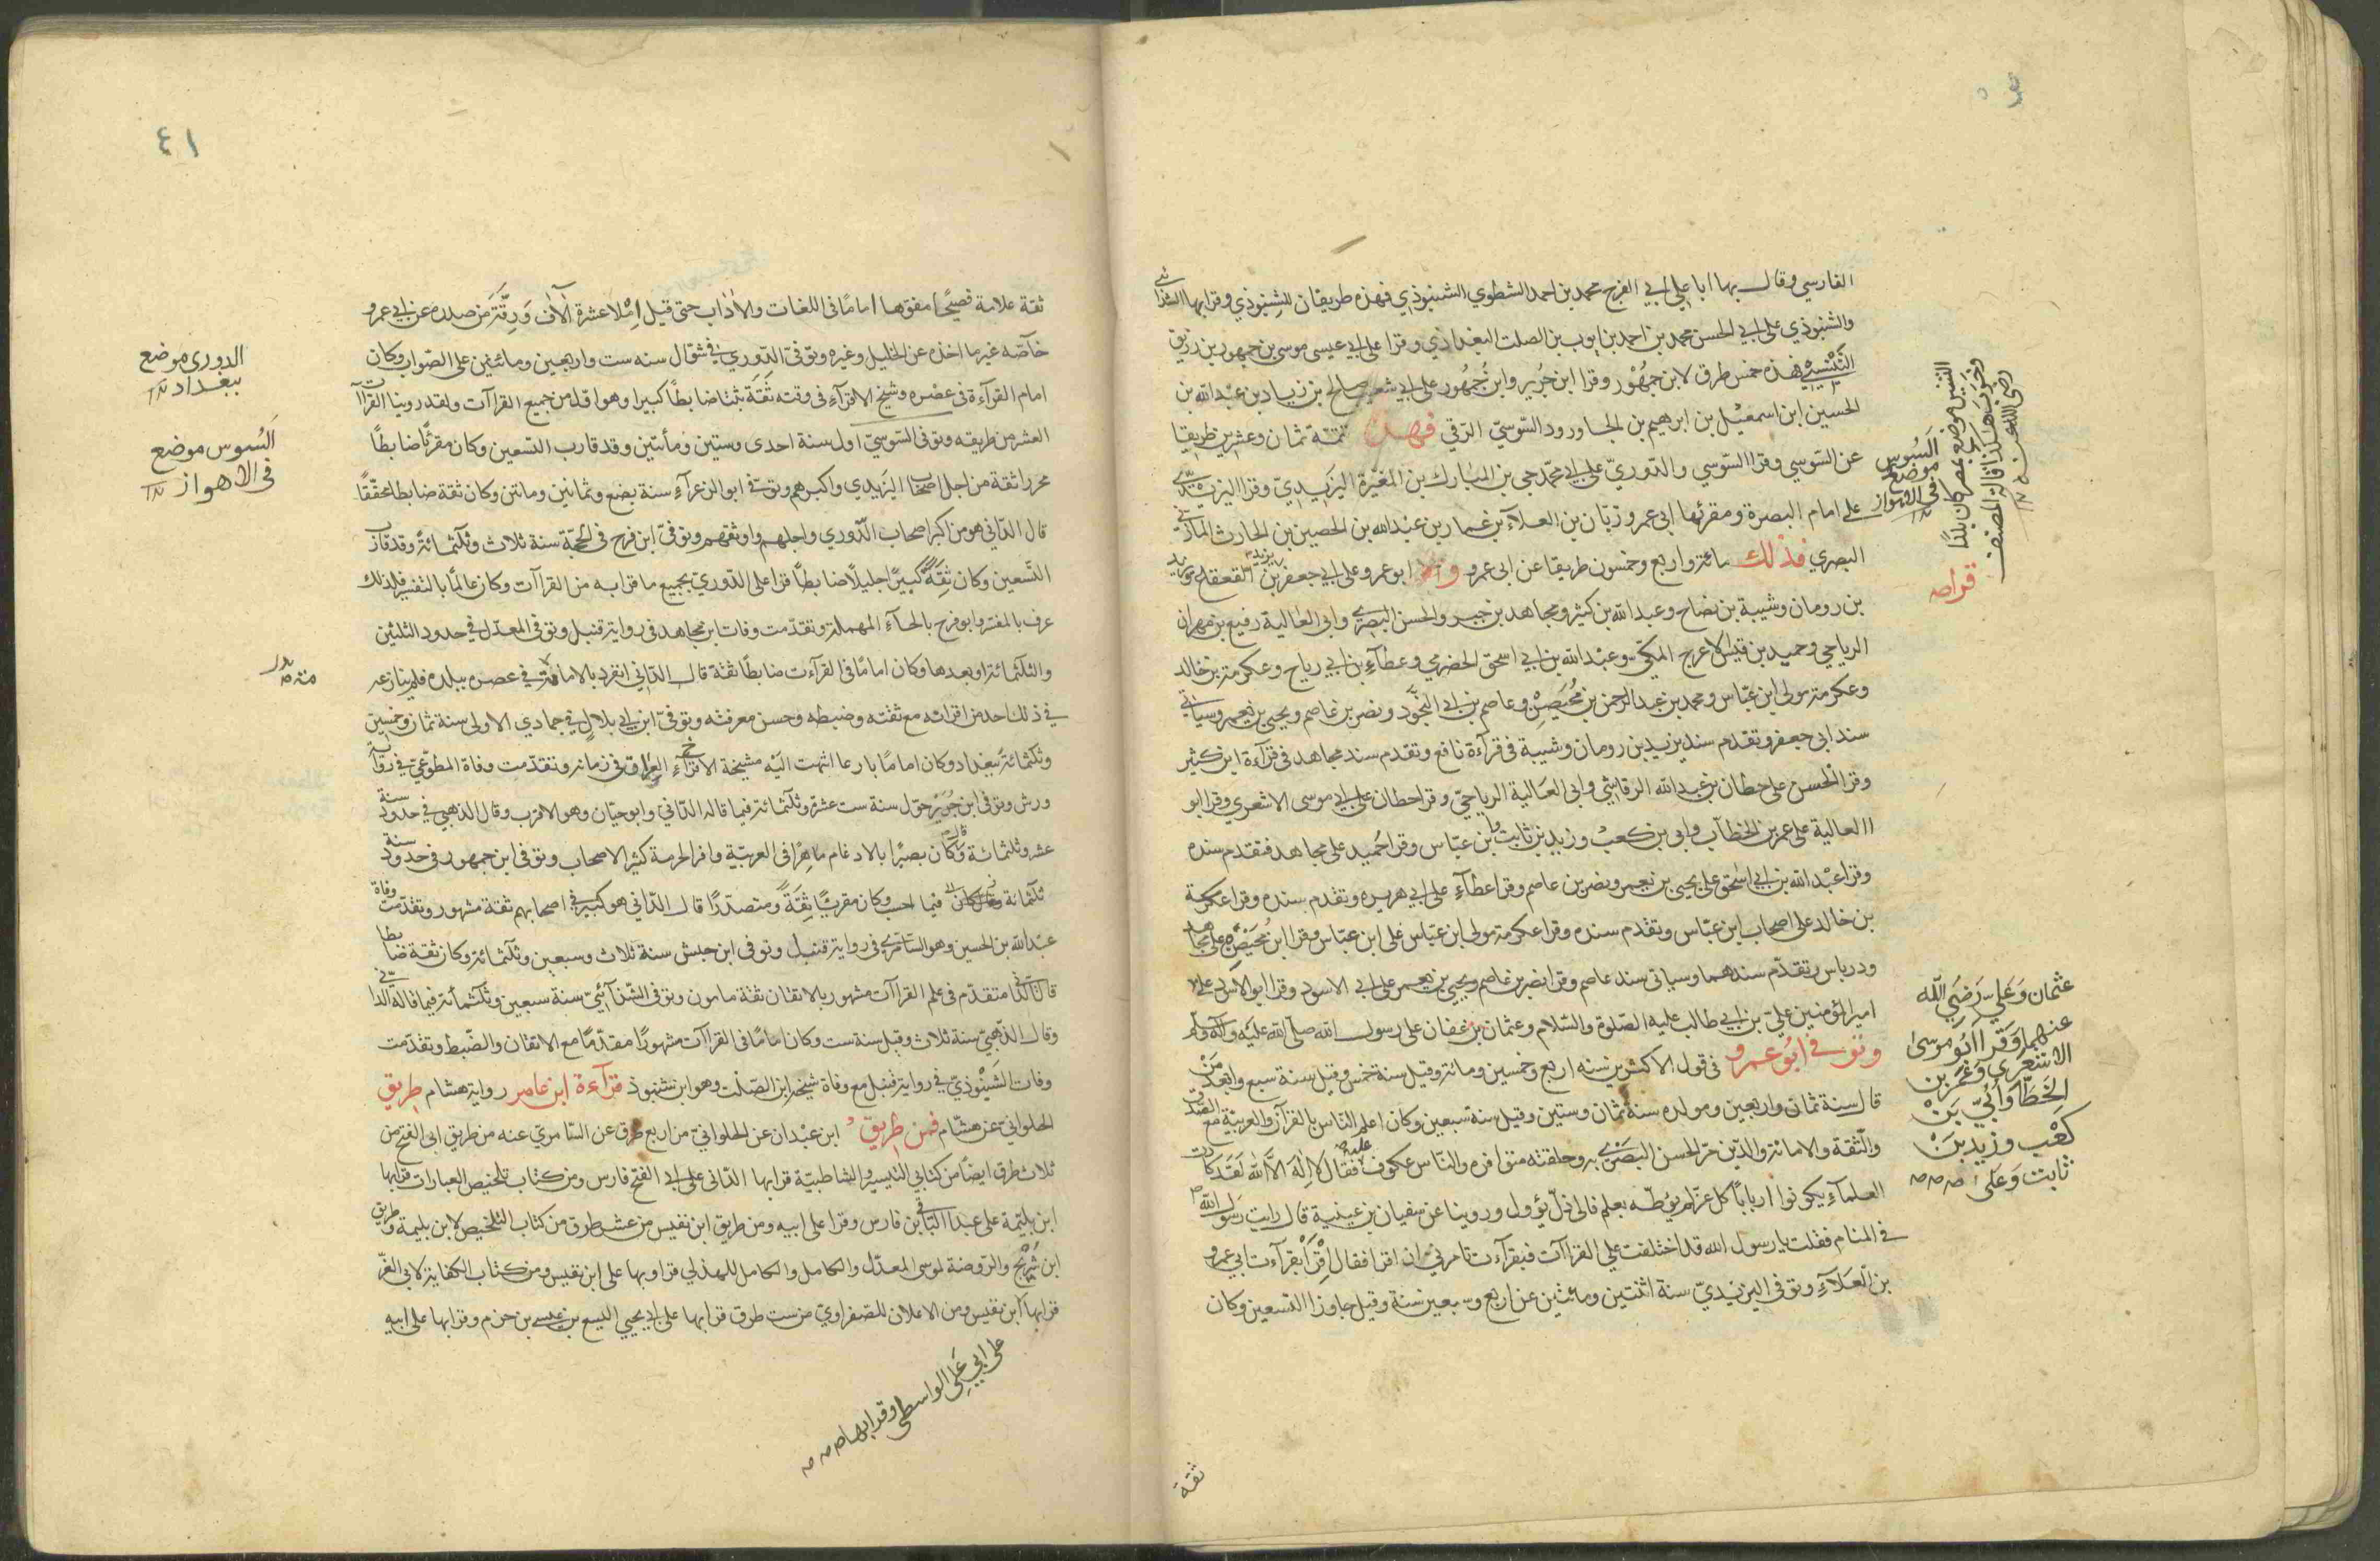 الفارسي وقال بها ابا علي ابي الفرج محمد بن احمد الشطوي الشنبوذي فهذه طريقان للشنبوذي وقرا بها الشذائي
والشنبوذي على ابي الحسن محمد بن احمد بن ايوب بن الصلت البغدادي وقرا على ابي عيسى موسى بن جمهور بن زريق
التنيسي فهذه خمس طرق لابن جمهور وقرا ابن جرير وابن جمهور على ابي شعيب صالح بن زياد بن عبد الله بن
الحسين ابن اسمعيل بن ابرهيم بن الجاورود السوسي الرقي فهذه تتمة ثمان وعشرين طريقا
عن السوسي وقرا السوسي والدوري على ابي محمد يحيى بن المبارك بن المغيرة اليزيدي وقرا اليزيدي
على امام البصرة ومقرئها ابي عمرو زبان بن العلاء بن عمار بن عبد الله بن الحصين بن الحارث المازني
البصري فذلك مائة واربع وخمسون طريقا عن ابي عمرو وقرا ابو عمرو على ابي جعفر يزيد بن القعقاع ويزيد
بن رومان وشيبة بن نصاح وعبد الله بن كثير ومجاهد بن جبر والحسن البصري وابي العالية رفيع بن مهران
الرياحي وحميد بن قيس الاعرج المكي وعبد الله بن ابي اسحق الحضرمي وعطاء بن ابي رباح وعكرمة بن خالد
وعكرمة مولى ابن عباس ومحمد بن عبد الرحمن بن محيصن وعاصم بن ابي النجود ونصر بن عاصم ويحيى بن يعمر وسياتي
سند ابي جعفر وتقدم سند يزيد بن رومان وشيبة في قراءة نافع وتقدم سند مجاهد في قراءة ابن كثير
وقرا الحسن على حطان بن عبد الله الرقاشي وابي العالية الرياحي وقرا حطان على ابي موسى الاشعري وقرا ابو
العالية على عمر بن الخطاب وابي بن كعب وزيد بن ثابت وابن عباس وقرا حميد على مجاهد فتقدم سنده
وقرا عبد الله بن ابي اسحق على يحيى بن يعمر ونصر بن عاصم وقرا عطاء على ابي هريره وتقدم سنده وقرا عكرمة
بن خالد على اصحاب ابن عباس وتقدم سنده وقرا عكرمة مولى ابن عباس على ابن عباس وقرا ابن محيصن على مجاهد
ودرباس وتقدم سندهما وسياتي سند عاصم وقرا نصر بن عاصم ويحيى بن يعمر على ابي الاسود وقرا ابو الاسود على
امير المؤمنين علي بن ابي طالب عليه الصلوة والسلام وعثمان بن عفان على رسول الله صلى الله عليه وآله وسلم
وتوفي ابو عمرو في قول الاكثرين سنه اربع وخمسين ومائة وقيل سنة خمس وقيل سنة سبع وابعد من
قال سنة ثمان واربعين ومولده سنة ثمان وستين وقيل سنة سبعين وكان اعلم الناس بالقرآن والعربية مع الصدق
والثقة والامانة والدين مر الحسن البصري به وحلقته متوافره والناس عكوف عليه فقال لا اله الا الله لقد كادت
العلماء يكونوا اربابا كل عز لم يوطد بعلم فالى ذل يؤول وروينا عن سفيان بن عيينة قال رايت رسول الله
في المنام فقلت يا رسول الله قد اختلفت علي القراات فبقراءت تامرني ان اقرا فقال اقرا بقراءت ابي عمرو
بن العلاء وتوفي اليزيدي سنة اثنتين ومائتين عن اربع وسبعين سنة وقيل جاوز التسعين وكان
ثقة
السوس
موضع
في الاهواز
التنيس موضع بمصر كان بلدا
رضي الله عنه
قواصه
عثمان وعلي رضي الله
عنهما وقرا ابو موسى
الاشعري وعمر بن
الخطاب وابي بن
كعب وزيد بن
ثابت وعلى
٤١
ثقة علامة فصيحا مفوها اماما في اللغات والاداب حتى قيل املا عشرة آلاف ورقة من صدره عن ابي عمرو
خاصة غير ما اخذه عن الخليل وغيره وتوفي الدوري في شوال سنه ست واربعين ومائتين على الصواب وكان
امام القراءة في عصره وشيخ الاقراء في وقته ثقة ثبتا ضابطا كبيرا وهو اول من جمع القراات ولقد روينا القراات
العشر من طريقه وتوفي السوسي اول سنة احدى وستين ومأتين وقد قارب التسعين وكان مقرئا ضابطا
محررا ثقة من اجل اصحاب اليزيدي واكبرهم وتوفي ابو الزعراء سنة بضع وثمانين ومائتين وكان ثقة ضابطا محققا
قال الداني هو من اكبر اصحاب الدوري واجلهم واوثقهم وتوفي ابن فرح في الحجة سنة ثلاث وثلثمائة وقد قارب
التسعين وكان ثقة كبيرا جليلا ضابطا قرا على الدوري بجميع ما قرا به من القراات وكان عالما بالتفسير فلذلك
عرف بالمفسر وابو فرح بالحاء المهملة وتقدمت وفات ابن مجاهد في رواية قنبل وتوفي المعدل في حدود الثلثين
والثلثمائة او بعدها وكان اماما في القراءت ضابطا ثقة قال الداني انفرد بالامامة في عصره ببلده فلم ينازعه
في ذلك احد من اقرانه مع ثقته وضبطه وحسن معرفته وتوفي ابن ابي بلال في جمادي الاولى سنة ثمان وخمسين
وثلثمائة ببغداد وكان اماما بارعا انتهت اليه مشيخة الاقراء بالعراق في زمانه وتقدمت وفاة المطوعي في رواية
ورش وتوفي ابن جرير حول سنة ست عشرة وثلثمائة فيما قاله الداني وابو حيان وهو الاقرب وقال الذهبي في حدود سنة
عشر وثلثمائة وكان بصيرا بالادغام ماهرا في العربية وافر الحرمة كثير الاصحاب وتوفي ابن جمهور في حدود سنة
ثلثمائة فيما احسب وكان مقريا ثقة ومتصدرا قال الداني هو كبير في اصحابهم ثقة مشهور وتقدمت وفاة
عبد الله بن الحسين وهو السامري في رواية قنبل وتوفي ابن حبش سنة ثلاث وسبعين وثلثمائة وكان ثقة ضابطا
قال الداني متقدم في علم القراات مشهور بالاتقان ثقة مامون وتوفي الشذائي سنة سبعين وثلثمائة فيما قاله الداني
وقال الذهبي سنة ثلاث وقيل سنة ست وكان اماما في القراات مشهورا مقدما مع الاتقان والضبط وتقدمت
وفات الشنبوذي في رواية قنبل مع وفاة شيخه ابن الصلت وهو ابن شنبوذ قراءة ابن عامر رواية هشام طريق
الحلواني عن هشام فمن طريق ابن عبدان عن الحلواني من اربع طرق عن السامري عنه من طريق ابي الفتح من
ثلاث طرق ايضا من كتابي التيسير والشاطبية قرا بها الداني على ابي الفتح فارس ومن كتاب تلخيص العبارات قرا بها
ابن بليمة على عبد الباقي بن فارس وقرا على ابيه ومن طريق ابن نفيس من عشر طرق من كتاب التلخيص لابن بليمة وطريق
ابن شريح والروضة لموسى المعدل والكامل والكامل للهذلي قراوبها على ابن نفيس ومن كتاب الكفاية لابي العز
قرا بها ابن نفيس ومن الاعلان للصفراوي من ست طرق قرا بها على ابي يحيى اليسع بن عيسى بن حزم وقرا بها على ابيه
على ابي علي الواسطي وقرا بها
الدوري موضع
ببغداد
السوس موضع
في الاهواز